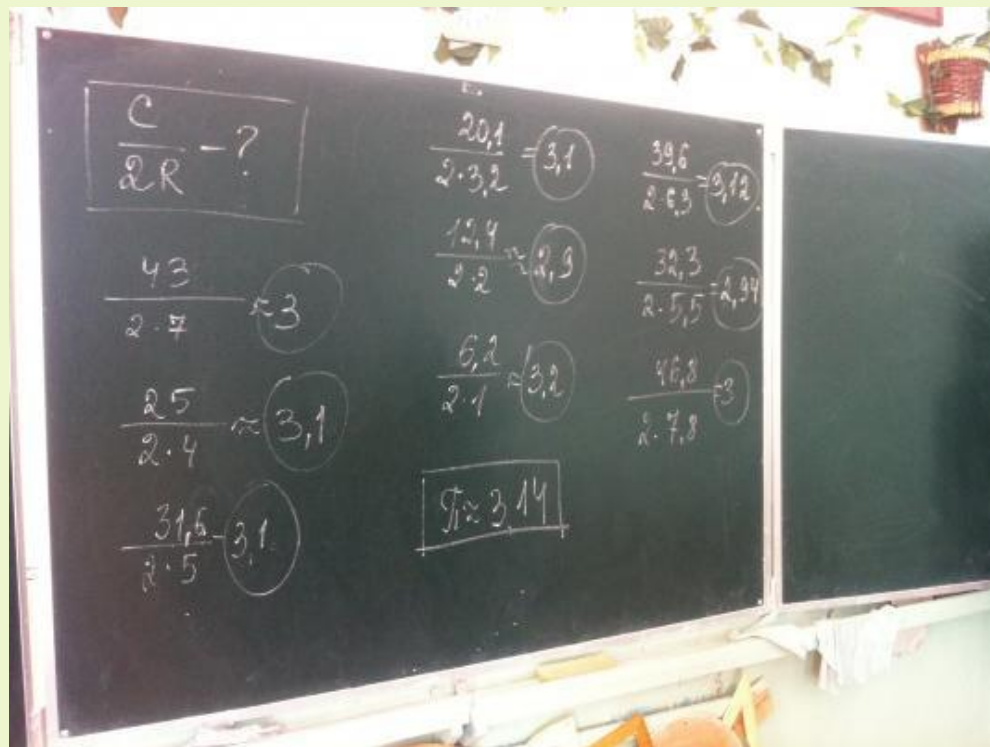 C/2R - ?
43/2·7 ≈ 3
25/2·4 ≈ 3,1
31,5/2·5 - 3,1
20,1/2·3,2 = 3,1
12,4/2·2 ≈ 2,9
6,2/2·1 ≈ 3,2
π ≈ 3,14
39,6/2·6,3 = 3,12
32,3/2·5,5 = 2,94
46,8/2·7,8 = 3